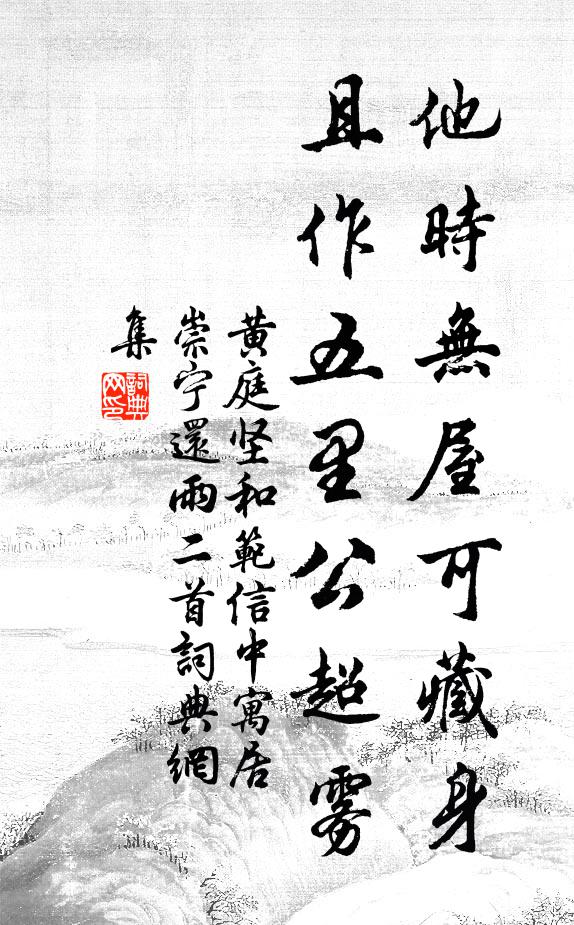 他時無屋可藏身
且作五里公超雾
黄庭坚和範信中寓居
崇宁還雨二首詞典網
集
詞典
网印